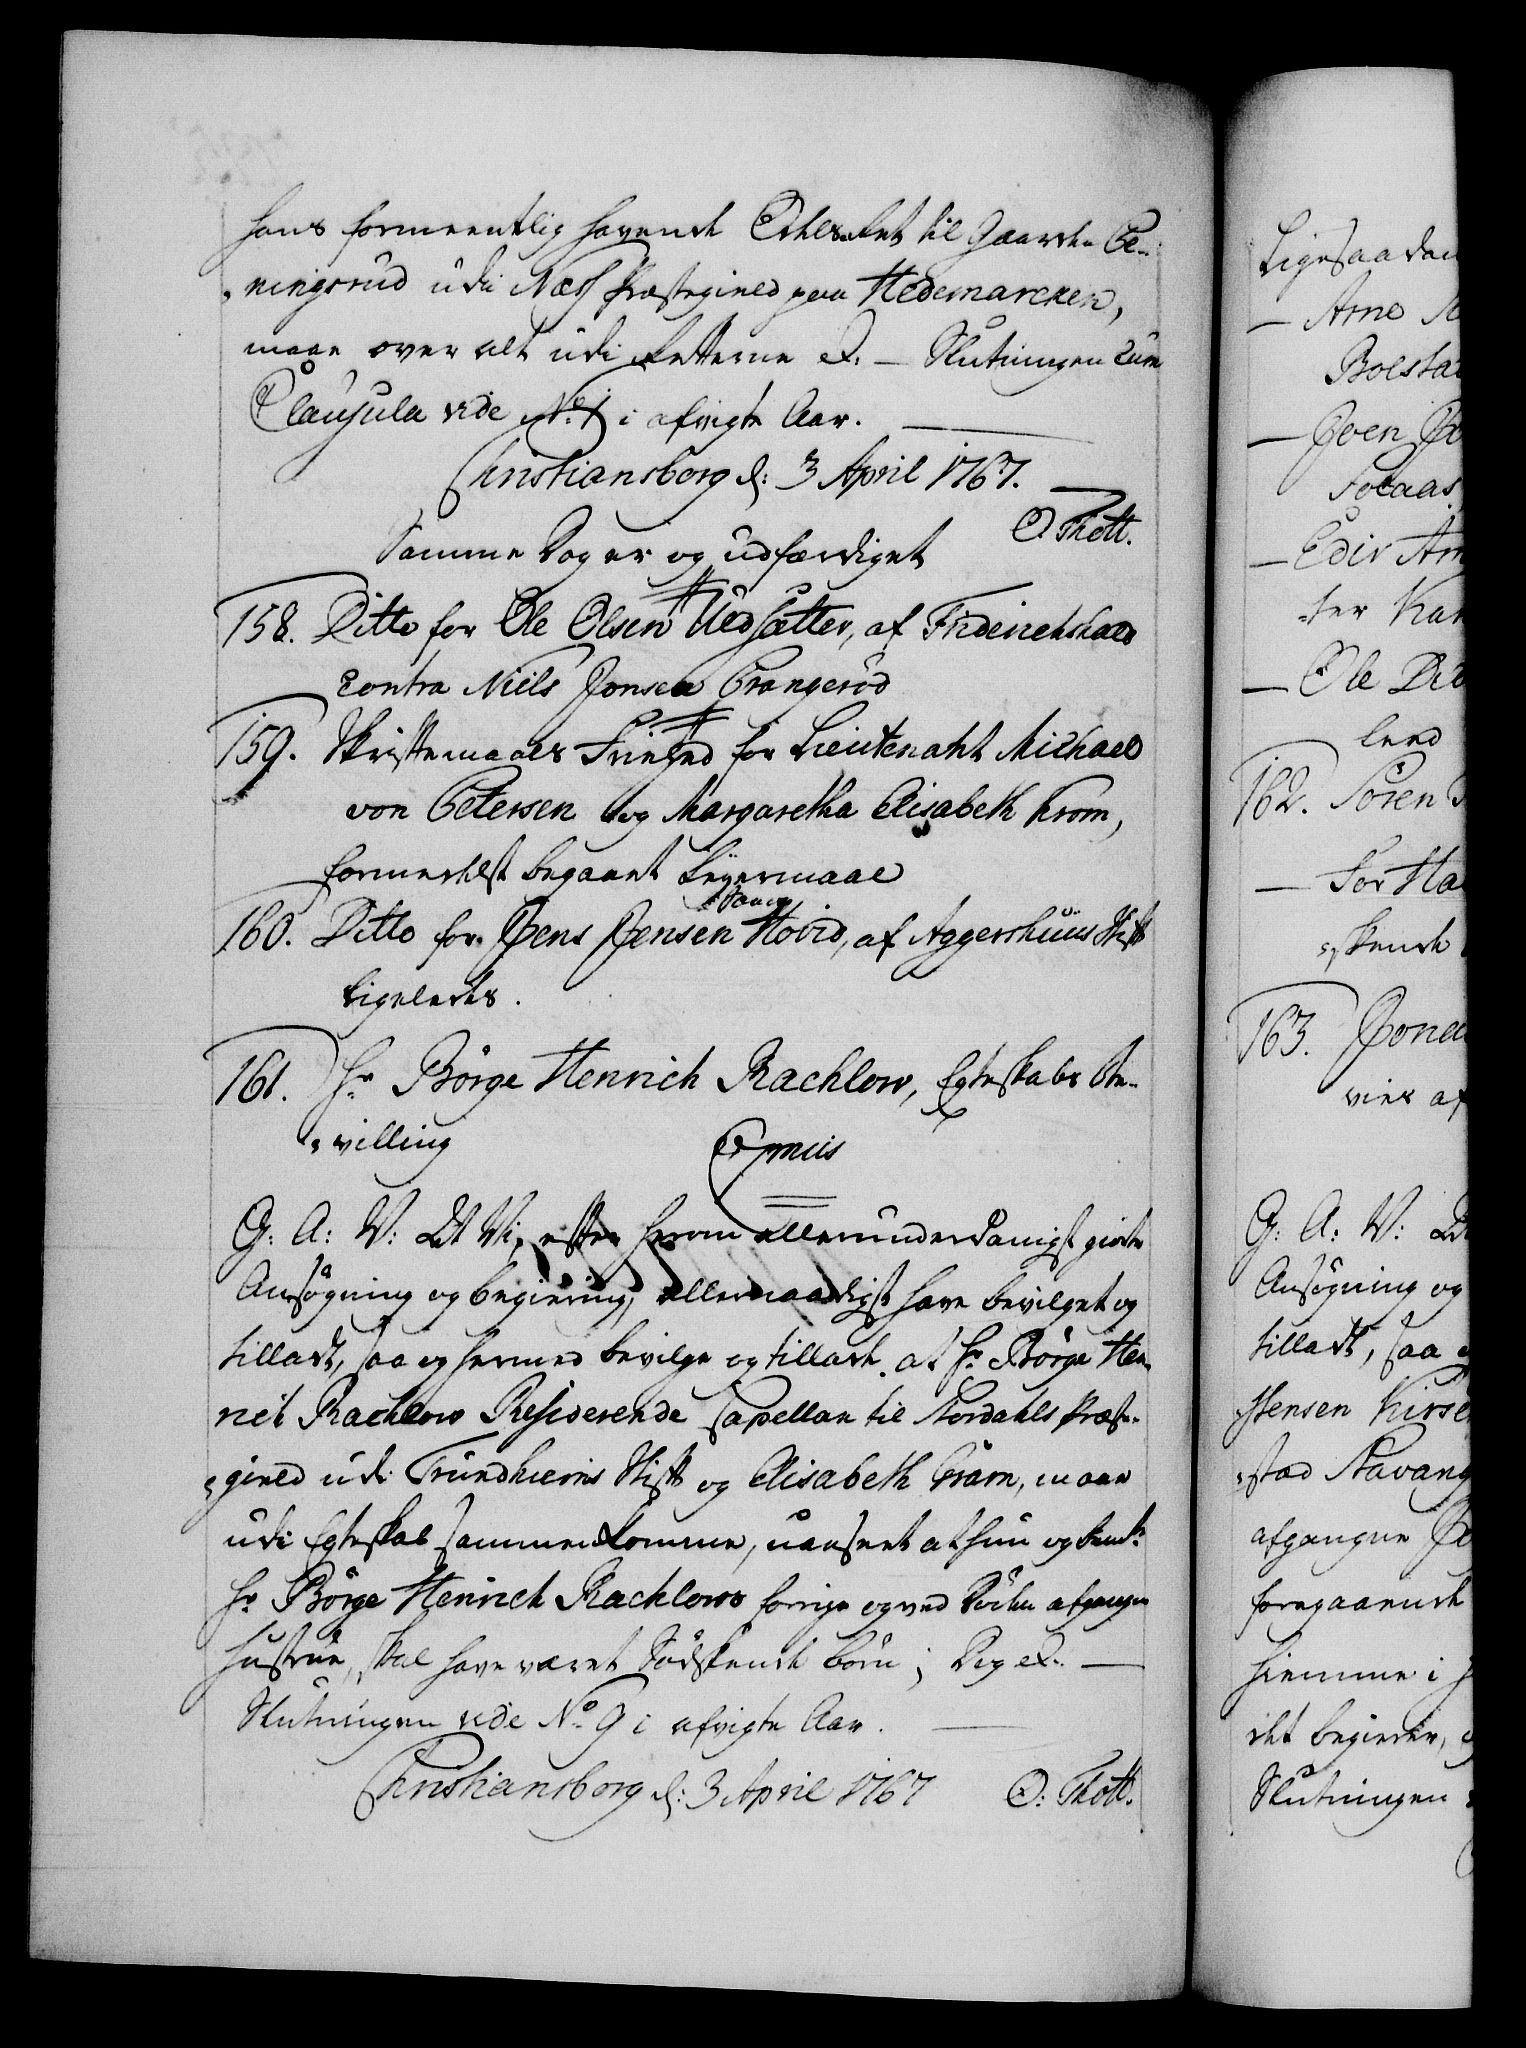 hans formeentlig havende Odels Ret til Gaarden Be-
ningsrud udi Næss Præstegield paa Hedemarcken,
maae over alt udi Retterne &. — Slutningen cum
Clausula vide No. 1 i afvigte Aar. —
Christiansborg d: 3 April 1767. —
O. Thott.
Samme Dag er og udfærdiget
158. Ditto for Ole Olsen Uldsætter, af Friderichshald
contra Niels Jonsen Prangeröd
159. Skriftemaals Frihed for Lieutenant Michael
von Petersen og Margaretha Elisabeth Krom,
formedelst begaaet Leyermaal
160. Ditto for Jens Jensen Hovid, af Aggershuus Stift
ligeledes.
161. Hr. Börge Henrich Rachlow, Egteskabs Be-
villing
G: A: V: At Vi, efter herom allerunderdanigst giorte
Ansögning og begiering, allernaadigst have bevilget og
tilladt, saa og hermed bevilge og tillade, at Hr. Börge Hen-
rich Rachlow Residerende Capellan til Nordahls Præste-
gield udi Trundhiems Stift og Elisabeth Cram, maae
udi Egteskab sammenkomme, uanseet at hun og bemte
Hr. Börge Henrich Rachlows forrige og ved Döden afgangne
Hustrue, skal have været Södskende Börn; Dog &. —
Slutningen vide No. 9 i afvigte Aar. —
Christiansborg d: 3 April 1767 O: Thott.
Ligesaadan
— Arne
— Joen
— Ole
162. Sören
— For
163.
G: A: V:
Ansögning og
tilladt, saa
afgangne
foregaaende
hiemme i
det begierer,
Slutningen